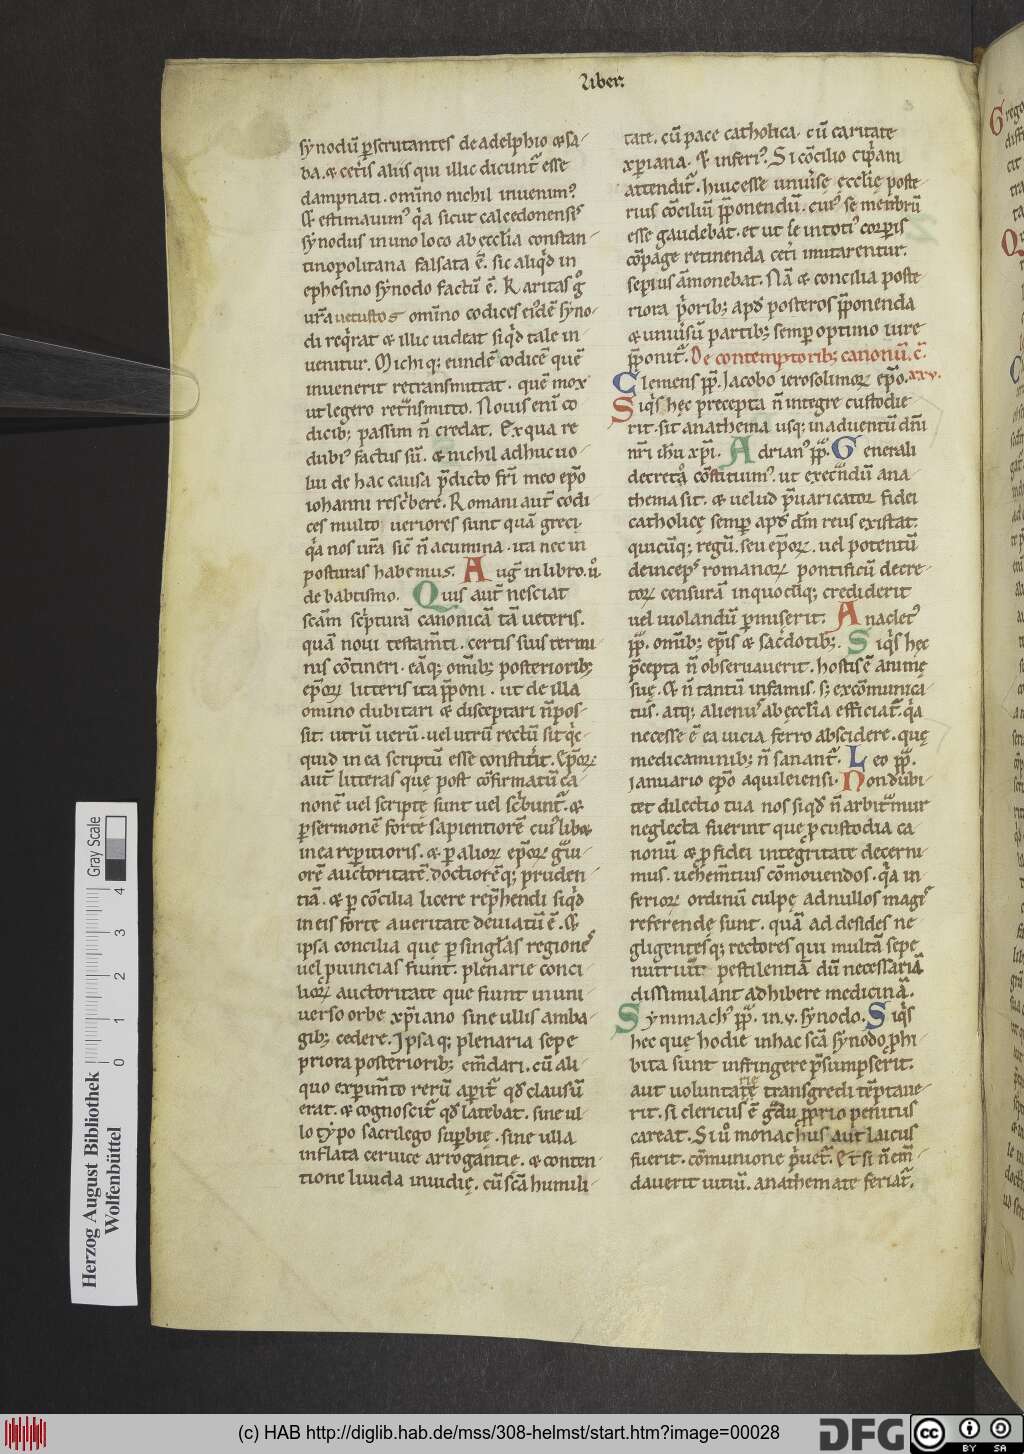 Liber.
synodū ꝑscrutantes de adelphio ⁊ sa-
ba. ⁊ cet̄is aliis qui illic dicunt̄ esse
dampnati. om̄ino nichil inuenim᷒
S; estimauim᷒ q̇a sicut calcedonensis
synodus in uno loco ab eccl̄ia constan-
tinopolitana falsata ē. sic aliq̇d in
ephesino synodo factū ē. Karitas ḡ
ur̄a uetustos om̄ino codices ei᷒dē syno-
di req̇rat ⁊ illic uideat siq̇d tale in-
uenitur. Michi q; eundē codicē quē
inuenerit retransmittat. quē mox
ut legero retn̄smitto. Nouis enī co
dicib; passim n̄ credat. Ex qua re
dubi᷒ factus sū. ⁊ nichil adhuc uo-
lui de hac causa p̄dicto fr̄i meo ep̄o
iohanni resc̄bere. Romani aut̄ codi
ces multo ueriores sunt quā greci-
q̇a nos ur̄a sic̄ n̄ acumina. ita nec in
posturas habemus. Auḡ in libro. ů.
de babtismo. Quis aut̄ nesciat
sc̄am sc̄pturā canonicā tā ueteris.
quā noui testam̄ti. certis suis termi-
nis cōtineri. eāq; om̄ib; posteriorib;
ep̄oꝝ litteris ita p̄poni. ut de illa
omino dubitari ⁊ disceptari n̄ pos-
sit. utrū uerū. uel utrū rectū sit q̇c-
quid in ea scriptū esse constit̄it. Ep̄oꝝ
aut̄ litteras que post cōfirmatū ca-
nonē uel scripte sunt uel sc̄bunt̄. ⁊
ꝑ sermonē forte sapientiorē cui᷒libet
in ea re peritioris. ⁊ ꝑ alioꝝ ep̄oꝝ g̊ui-
orē auctoritatē. doctiorēq; pruden-
tiā. ⁊ ꝑ cōcilia licere rep̄hendi siq̇d
in eis forte a ueritate deuiatū ē. Et
ipsa concilia que ꝑ singl̄as regiones
uel p̄uincias fiunt. plenarie conci-
lioꝝ auctoritate que fiunt in uni-
uerso orbe xp̄iano sine ullis amba-
gib; cedere. Ipsa q; plenaria sepe
priora posteriorib; em̄dari. cū ali-
quo exp̄im̄to rerū aperit̄ qd̄ clausū
erat. ⁊ cognoscit̄ qd̄ latebat. sine ul-
lo typo sacrilego suꝑbie. sine ulla
inflata ceruice arrogantie. ⁊ conten-
tione liuida inuidie. cū sc̄ā humili-
tate. cū pace catholica. cū caritate
xp̄iana. Et inferi᷒. Si cōcilio cip̄ani
attendit̄. huic esse uniūse ęcclię poste-
rius cōciliū p̄ponendū. cui᷒ se menbrū
esse gaudebat. et ut se in toti᷒ corꝑis
cōpage retinenda cet̄i imitarentur.
sepius āmonebat. Nā ⁊ concilia poste-
riora p̄orib; apd̄ posteros p̄ponenda
⁊ uniūsū partib; semꝑ optimo iure
p̄ponit̄. De contemptorib; canonū. c̄.
xxv.
Clemens pp̄. Iacobo ierosolimoꝝ ep̄o.
Siq̇s hęc precepta n̄ integre custodie
rit. sit anathema usq; in aduentū dn̄i
nr̄i ih̄u xp̄i. Adrian᷒ pp̄. Generali
decreto cōstituim᷒. ut execn̄dū ana-
thema sit. ⁊ uelud p̄uaricator fidei
catholicę semꝑ apd̄ dm̄ reus existat.
quicūq; regū. seu ep̄oꝝ. uel potentū
deinceps romanoꝝ pontificū decre-
toꝝ censurā in quocūq; crediderit
uel uiolandū ꝑmiserit. Anaclet᷒
pp̄. om̄ib; ep̄is ⁊ sac̄dotib;. Siq̇s hęc
p̄cepta n̄ obseruauerit. hostis ē animę
suę. Et n̄ tantū infamis. s; excōmunica-
tus. atq; alienus ab ęccl̄ia efficiat̄. q̇a
necesse ē ea uicia ferro abscidere. quę
medicaminib; n̄ sanant̄. Leo pp̄.
ianuario ep̄o aquileiensi. Non dubi-
tet dilectio tua nos siqd̄ n̄ arbitn̄mur
neglecta fuerint que ꝑ custodia ca
nonū ⁊ ꝑ fidei integritate decerni
mus. uehem̄tius cōmouendos. q̇a in-
ferioꝝ ordinū culpę ad nullos magis
referende sunt. quā ad desides ne
gligentesq; rectores qui multā sepe
nutriūt pestilentiā dū necessariā
dissimulant adhibere medicinā.
Symmach᷒ pp̄. in .v. synodo. Siq̇s
hec quę hodie in hac sc̄ā synodo phi
bita sunt infringere p̄sumpserit.
aut uoluntarie transgredi temptaue-
rit. si clericus ē g̊du pprio penitus
careat. Si ů monachus aut laicus
fuerit. cōmunione p̄uet̄. Et si n̄ em̄-
dauerit uitiū. anathemate feriat̄.
Gray Scale
4
3
2
1
0
Herzog August Bibliothek
Wolfenbüttel
(c) HAB http://diglib.hab.de/mss/308-helmst/start.htm?image=00028
DFG
cc BY SA